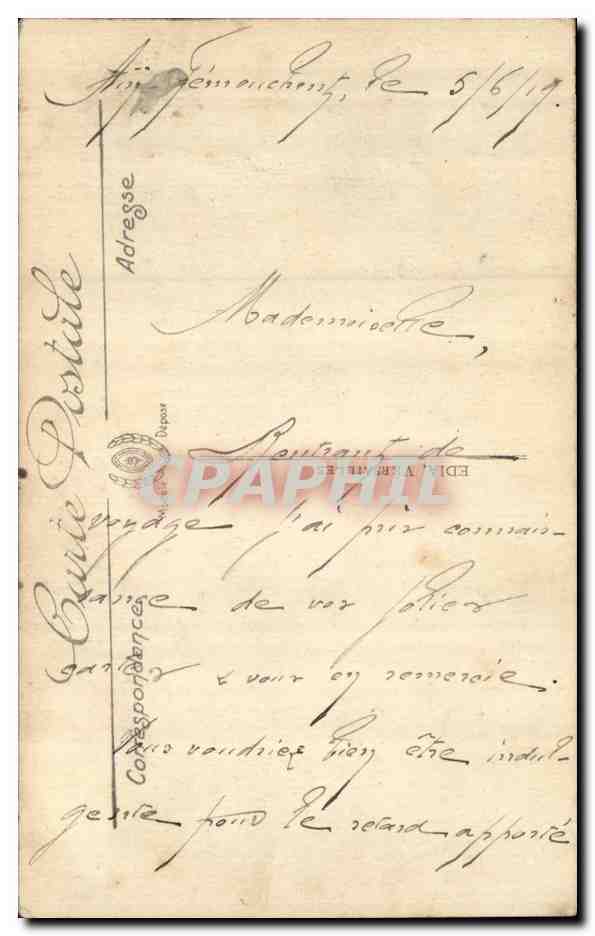 Aïn-Témouchent, le 5/6/19.
Mademoiselle,
Rentrant de
voyage j'ai pris connais-
sance de vos jolies
cartes & vous en remercie.
Vous voudriez bien être indul-
gente pour le retard apporté
Carte Postale
Adresse
Correspondance
Déposé
EDIA, VERSAILLES
CPAPHIL